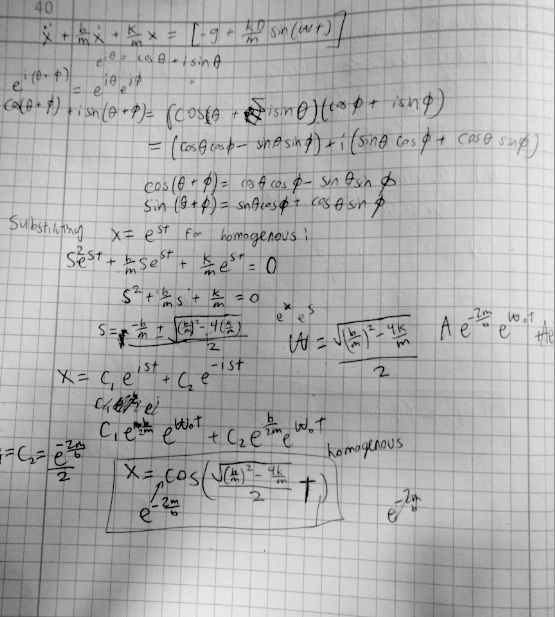 40
ẍ + b/m ẋ + k/m x = [-g + kD/m sin(wt)]
e^{iθ} = cosθ + isinθ
e^{i(θ+ϕ)} = e^{iθ} e^{iϕ}
cos(θ+ϕ) + isn(θ+ϕ) = (cos(θ + isinθ)(cosϕ + isnϕ)
= (cosθcosϕ - snθsinϕ) + i(sinθ cosϕ + cosθ sinϕ)
cos(θ+ϕ) = cosθ cosϕ - sinθ sin ϕ
sin (θ+ϕ) = snθcosϕ + cosθ sin ϕ
Substituting x = e^{st} for homogenous:
s²e^{st} + b/m se^{st} + k/m e^{st} = 0
s² + b/m s + k/m = 0
s = (-b/m ± √((b/m)² - 4(k/m)))/2
e^x e^s
W = √((b/m)² - 4k/m)/2
A e^{-2m/b} e^{W₀t} + Ae
x = C₁ e^{ist} + C₂ e^{-ist}
C₁ e^{b/2m} e^{W₀t} + C₂ e^{b/2m} e^{W₀t}
= C₂ = e^{-2m/b}/2
homogenous
x = cos(√((b/m)² - 4k/m)/2 t)
e^{-2m/b}
e^{-2m/b}